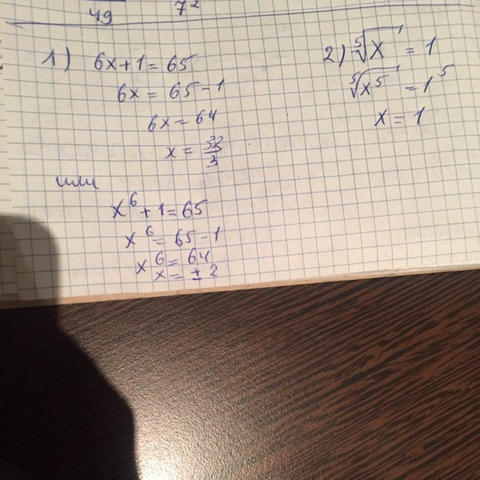 49 7²
1) 6x+1=65
6x = 65-1
6x = 64
x = 32/3
или
x⁶+1=65
x⁶=65-1
x⁶=64
x=±2
2) ⁵√x = 1
⁵√x⁵ = 1⁵
x = 1